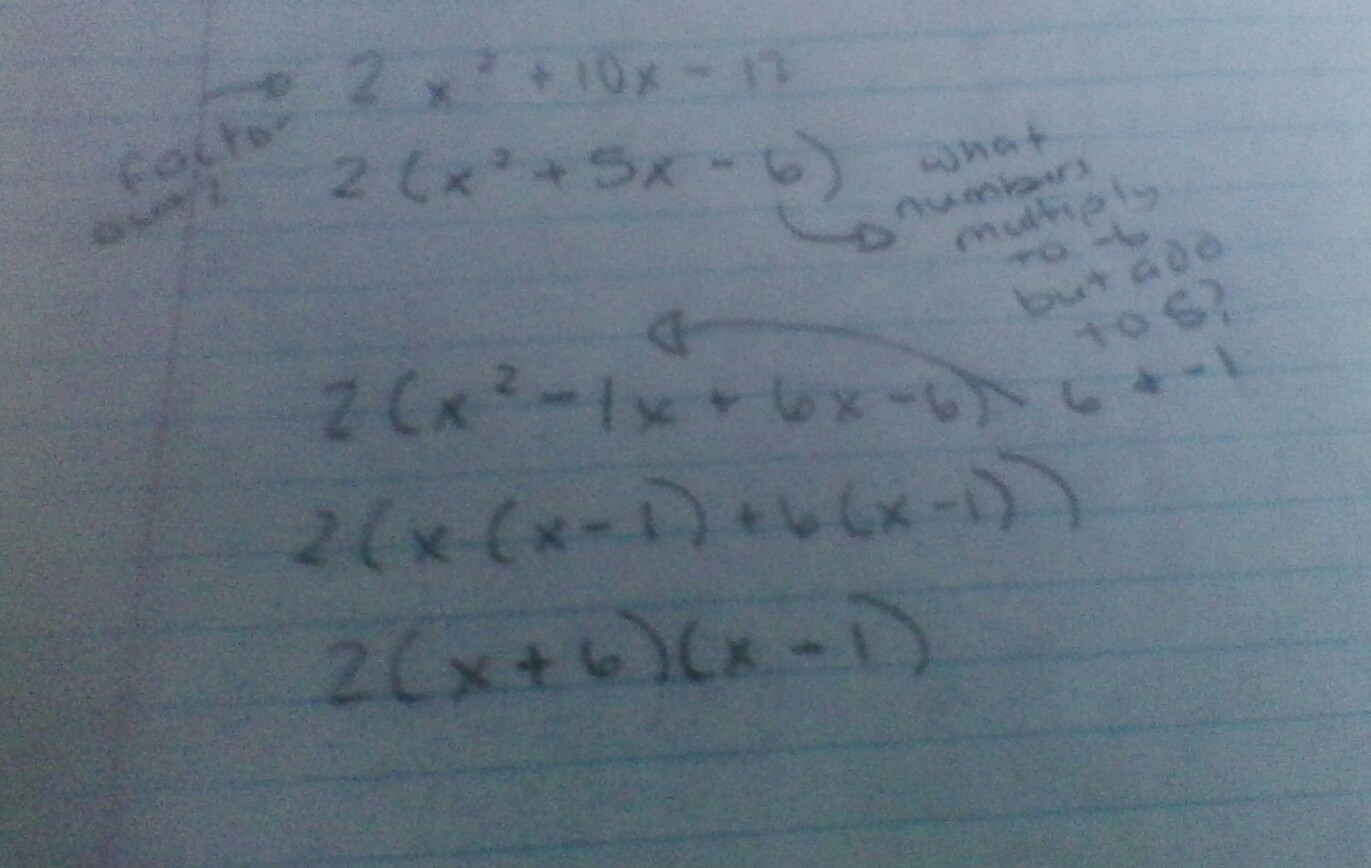 2x² + 10x - 12
factor
out 2
2(x² + 5x - 6)
what
numbers
multiply
to -6
but add
to 5?
6 + -1
2(x² - 1x + 6x - 6)
2(x(x-1) + 6(x-1))
2(x+6)(x-1)